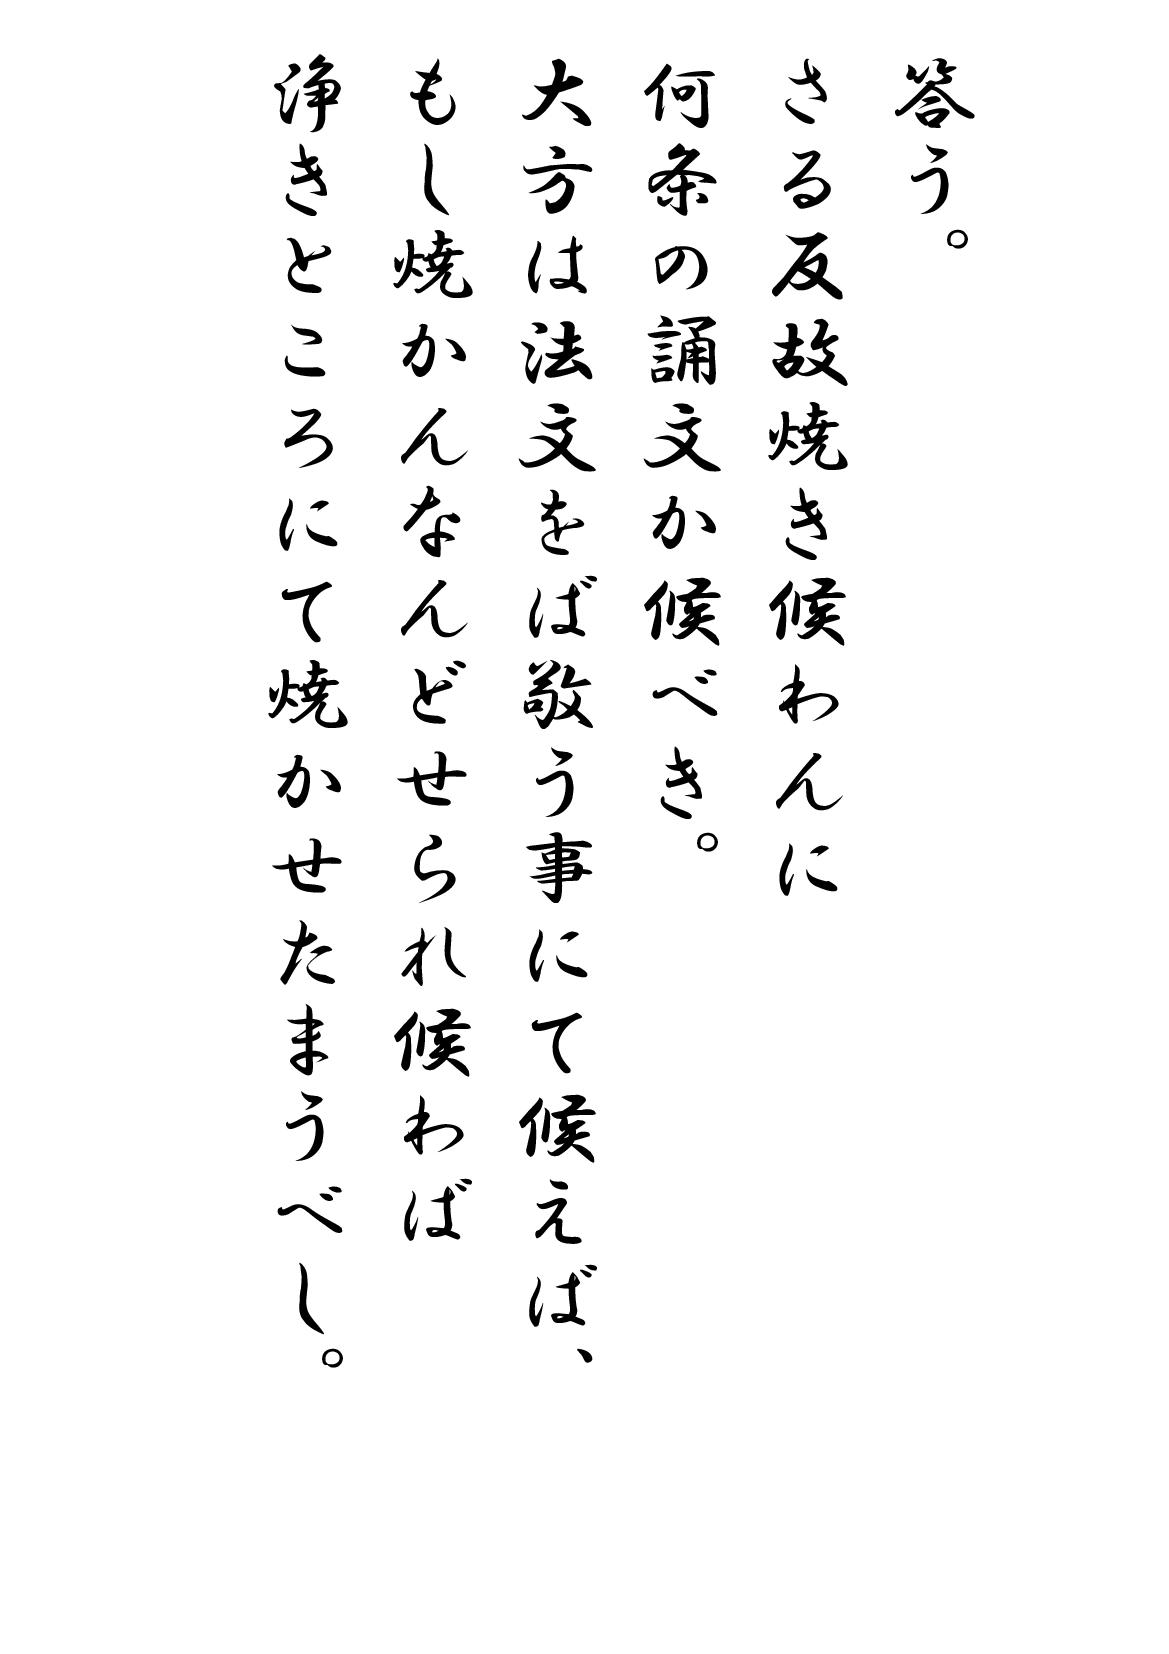 答う。
さる反故焼き候わんに
何条の誦文か候べき。
大方は法文をば敬う事にて候えば、
もし焼かんなんどせられ候わば
浄きところにて焼かせたまうべし。